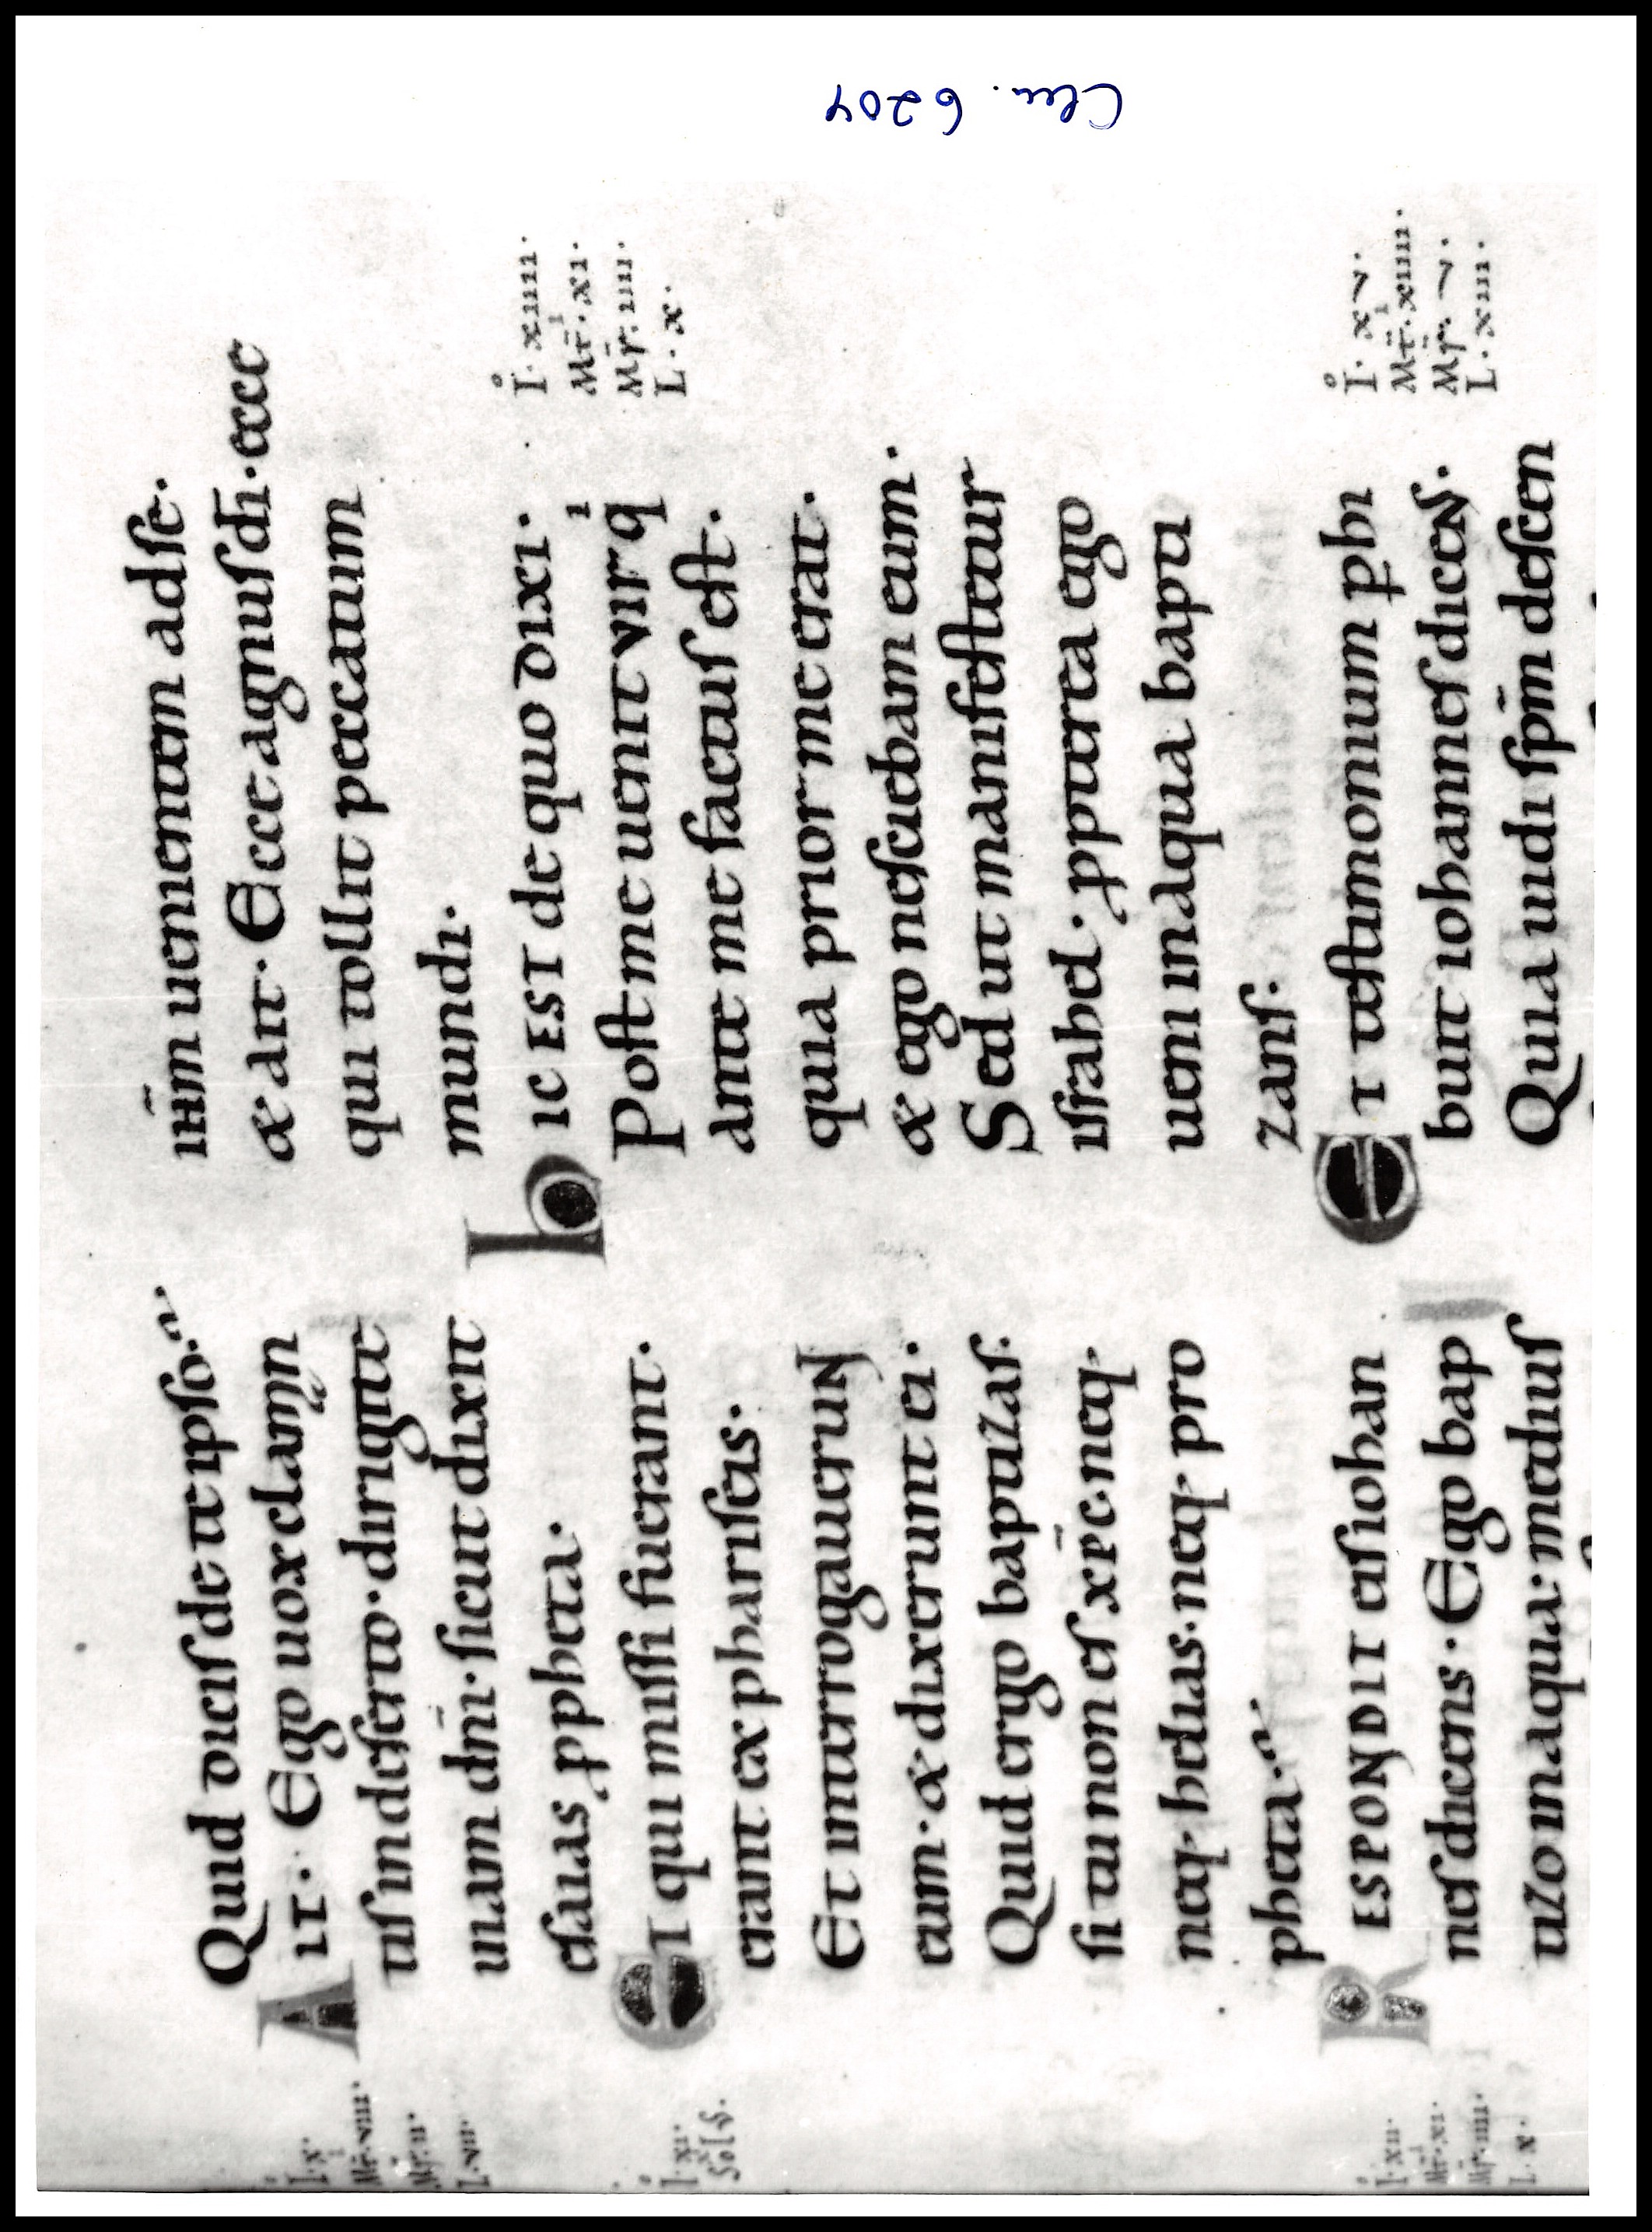 Clm. 6204
I·x·
Mt̄·viii·
Mr̄·ii·
L·vii·
I·xi·
Solꝰ.
I·xii·
Mt̄·xi·
Mr̄·iiii·
L·x·
Quid dicisdeteipso·
AIT· Ego uox claman
tisindeserto·dirigite
uiam dn̄i·sicut dixit
esaias ꝓpheta·
ET qui missi fuerant·
erant ex phariseis·
Et interrogauerun
eum·& dixerunt ei·
Quid ergo baptizas·
si tu non es xp̄c·neq·
neq· helias·neq· pro
pheta·
RESPONDIT eisiohan
nesdicens·Ego bap
tizoinaqua·mediuſ
ih̄m uenientem adſe·
& ait·Ecce agnusdī·ecce
qui tollit peccatum
mundi·
hIC EST de quo dixi·
Post me uenit vir q
ante me factus est·
quia prior me erat·
& ego nesciebam eum·
Sed ut manifestetur
israhel·ꝓpterea ego
ueni inaqua bapti
zans·
ET testimonium ꝑhi
buit iohannes dicens·
Quia uidi sp̄m descen
I·xiiii·
Mt̄·xi·
Mr̄·iiii·
L·x·
I·xv·
Mt̄·xiiii·
Mr̄·v·
L·xiii·